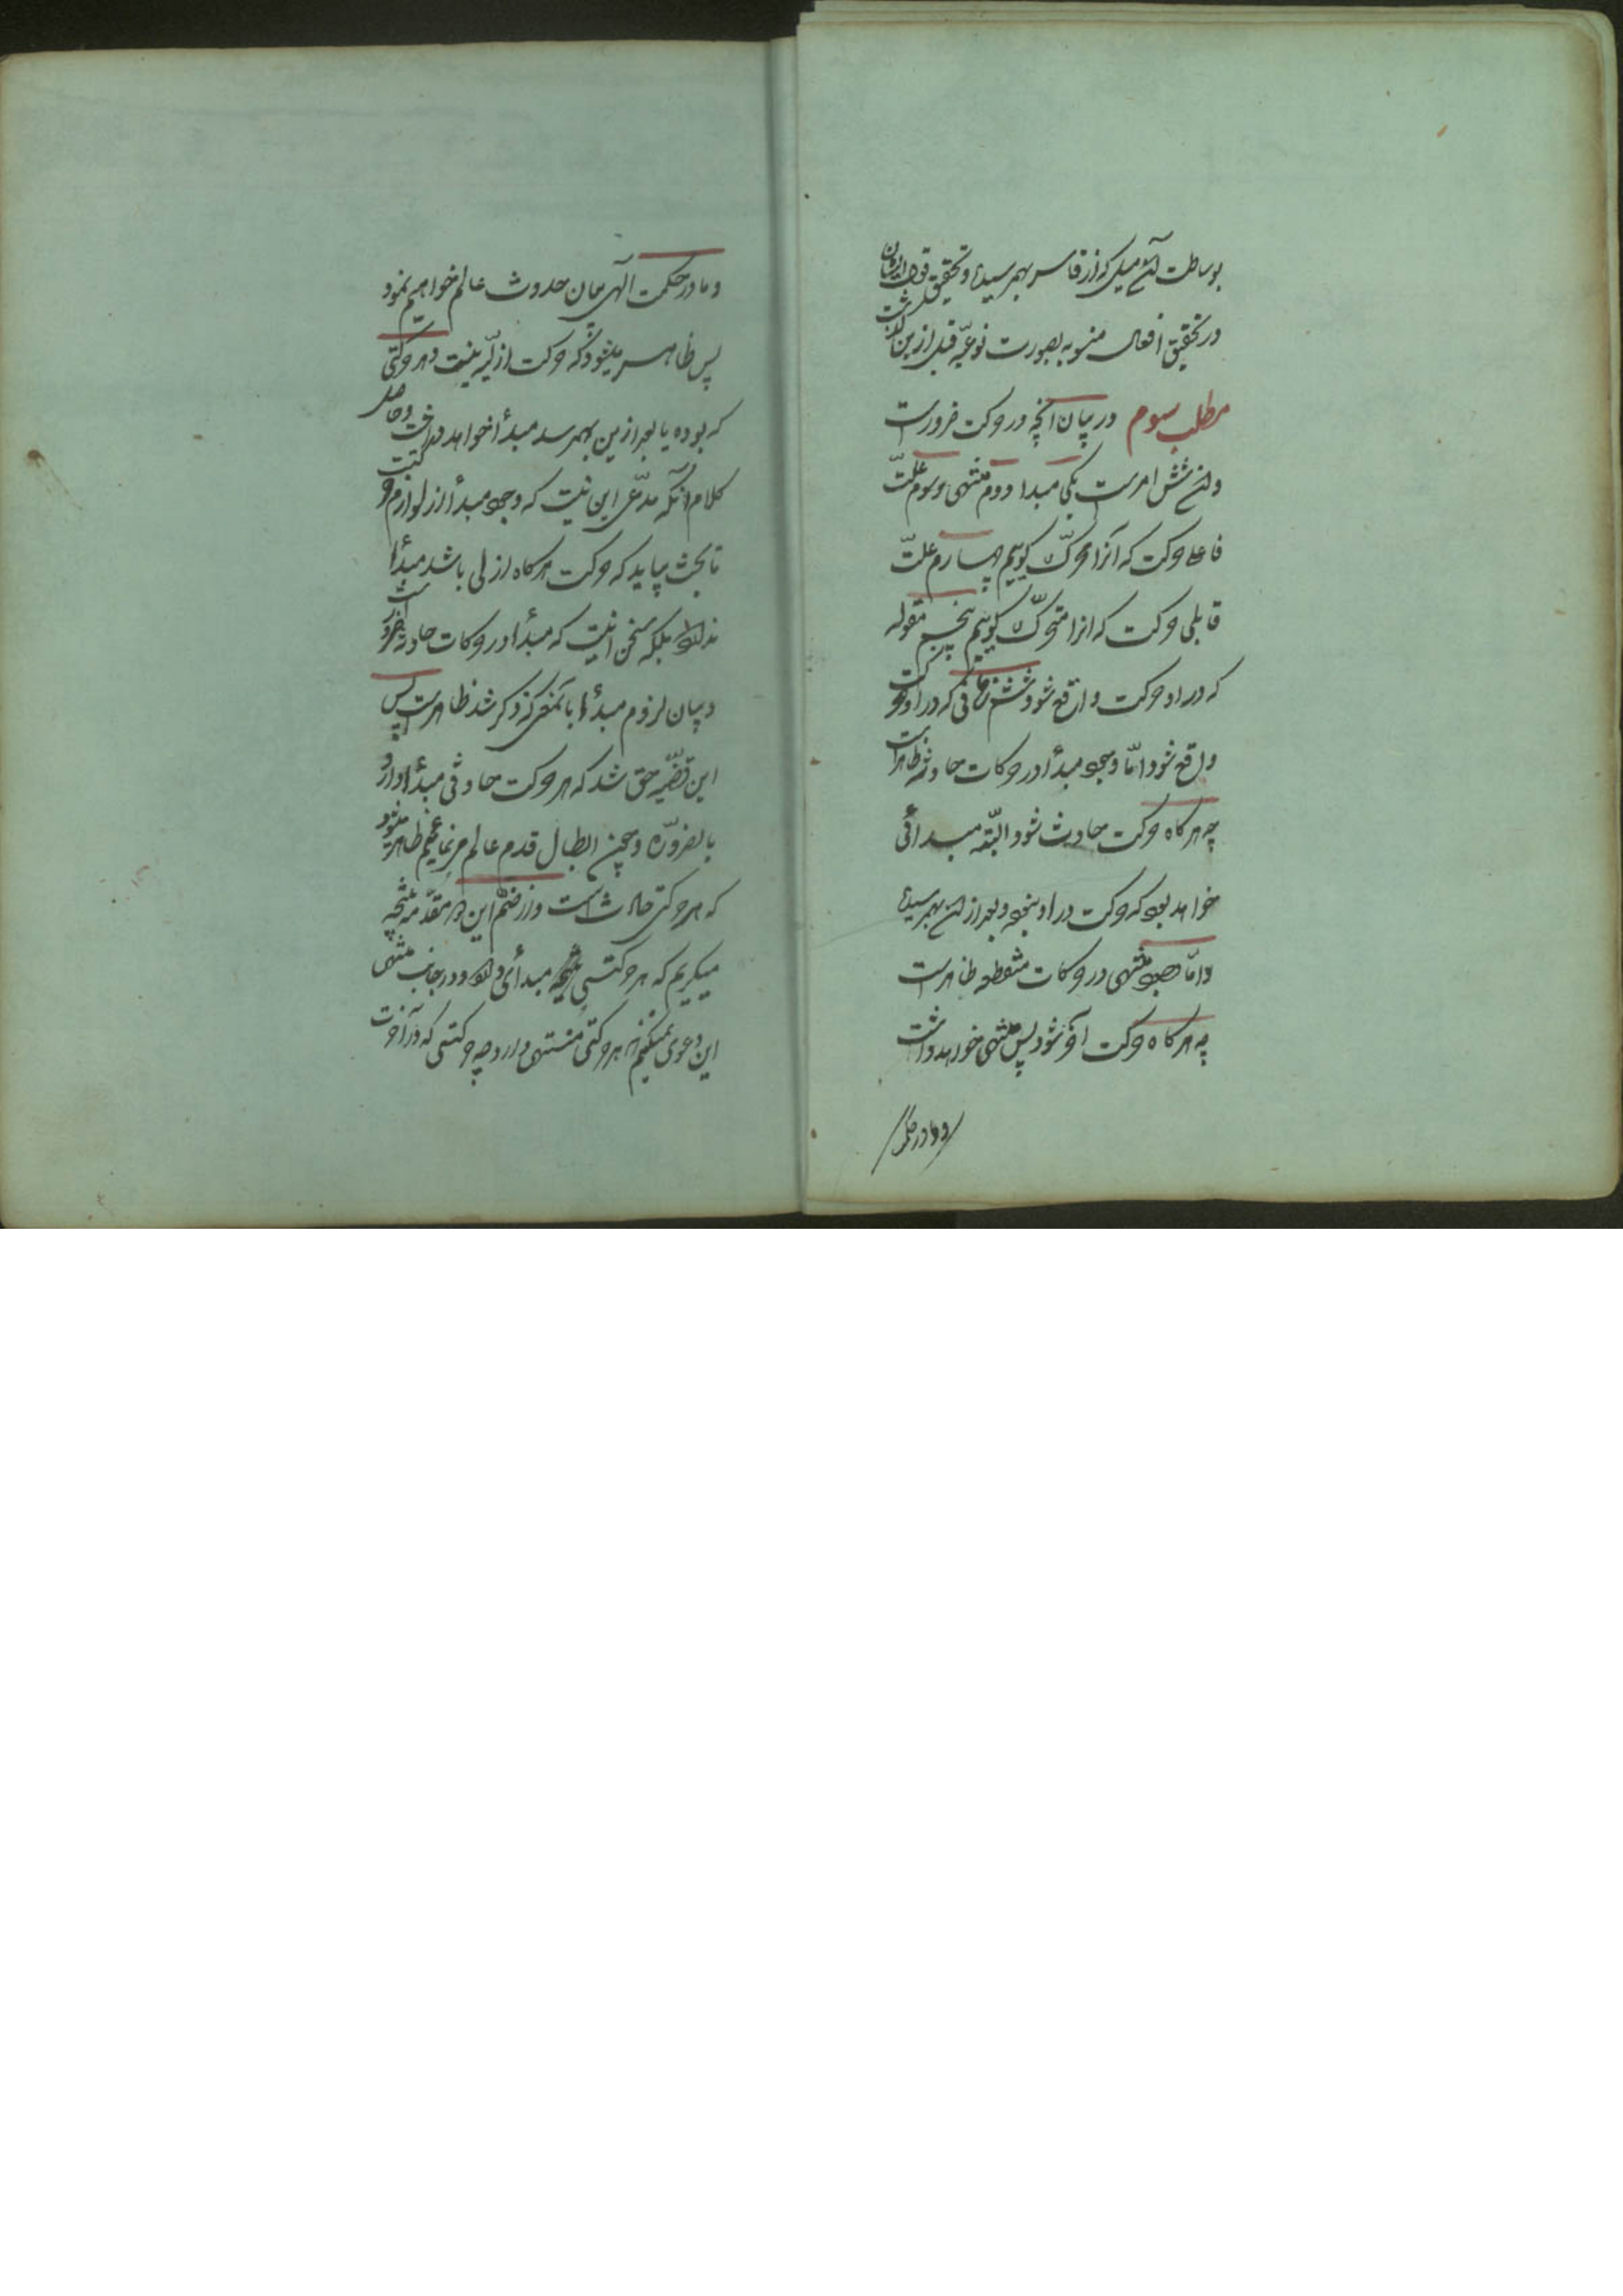 بوساطت آن میلی که از قاسر بهمرسیده و تحقیق قول ایشان
در تحقیق افعال منسوبه بصورت نوعیّه قبل ازین گذشت
مطلب سوم در بیان آنچه در حرکت ضرورست
وان شش امرست یکی مبدا دوم منتهی و سوم علّت
فاعلی حرکت که آنرا محرّک گوییم چهارم علّت
قابلی حرکت که انرا متحرّک گوییم پنجم مقوله
که در او حرکت واقع شود ششم زمانی که در او حرکت
واقع شود امّا وجود مبدأ در حرکات حادثه ظاهرست
چه هرگاه حرکت حادث شود البتّه مبدائی
خواهد بود که حرکت در او نبوده و بعد از ان بهمرسیده
و امّا وجود منتهی در حرکات منقطعه ظاهرست
چه هرگاه حرکت آخر شود پس منتهی خواهد داشت
و ما در حکمت
و ما در حکمت الهی بیان حدوث عالم خواهیم نمود
پس ظاهر میشود که حرکت ازلیّه نیست و هر حرکتی
که بوده یا بعد ازین بهمرسد مبدأ خواهد داشت و حاصل
کلام آنکه مدّعی این نیست که وجود مبدأ از لوازم حرکتست
تا بحث بیاید که حرکت هرگاه ازلی باشد مبدأ
ندارد بلکه سخن اینست که مبدأ در حرکات حادثه ضرورست
و بیان لزوم مبدأ بآنمعنی که ذکر شد ظاهرست پس
این قضیّه حق شد که هر حرکت حادثی مبدأ دارد
بالضرورة و چون ابطال قدم عالم مینماییم ظاهر میشود
که هر حرکتی حادث است و از ضمّ این دو مقدّمه نتیجه
میگیریم که هر حرکتی مبدأی دارد و در جانب منتهی
این دعوی نمیکنیم که هر حرکتی منتهی دارد چه حرکتی که در آخرت